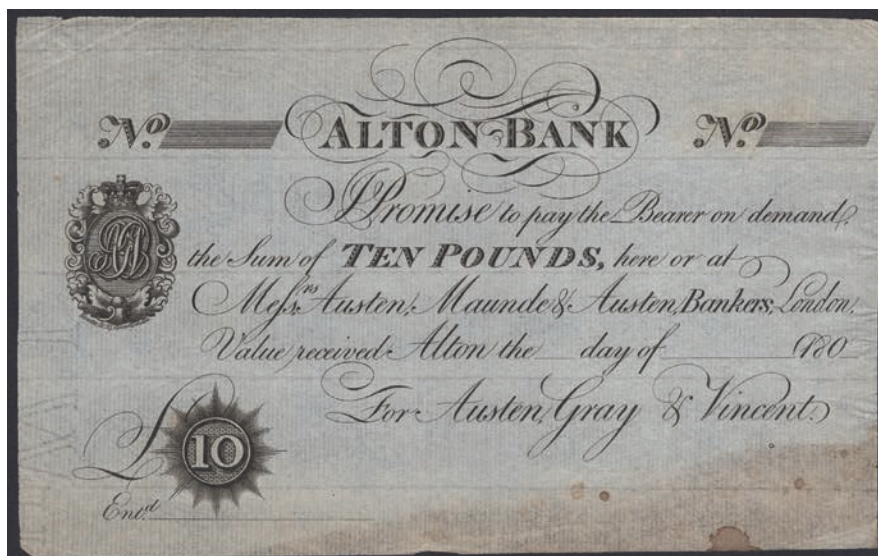 No. ALTON BANK No.
I Promise to pay the Bearer on demand
the Sum of TEN POUNDS, here or at
Messrs. Austen, Maunde & Austen, Bankers, London.
Value received Alton the day of 180
For Austen, Gray & Vincent.
£10
Entd.